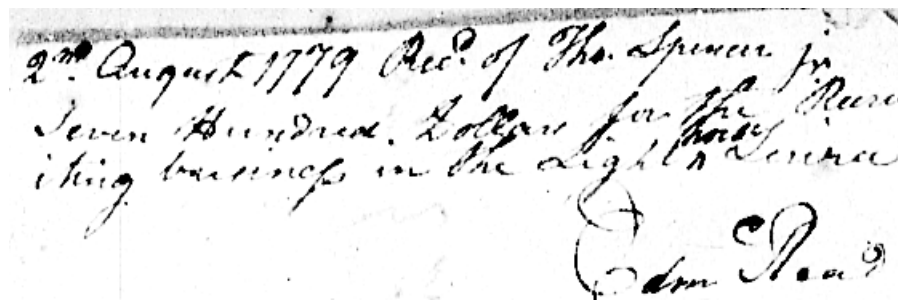 2nd. August 1779 Recd. of Tho. Spencer jr
Seven Hundred Dollars for the Recru
iting business in the Light horse Service
Edm Read